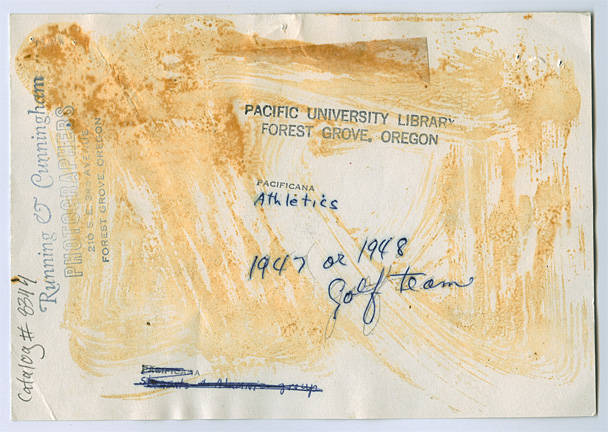 PACIFIC UNIVERSITY LIBRARY
FOREST GROVE, OREGON
PACIFICANA
Athletics
1947 or 1948
Golf team
PACIFICANA
Students & Alumni group
Running & Cunningham
PHOTOGRAPHERS
210 S.E. 3RD AVENUE
FOREST GROVE, OREGON
Catalog # 8344